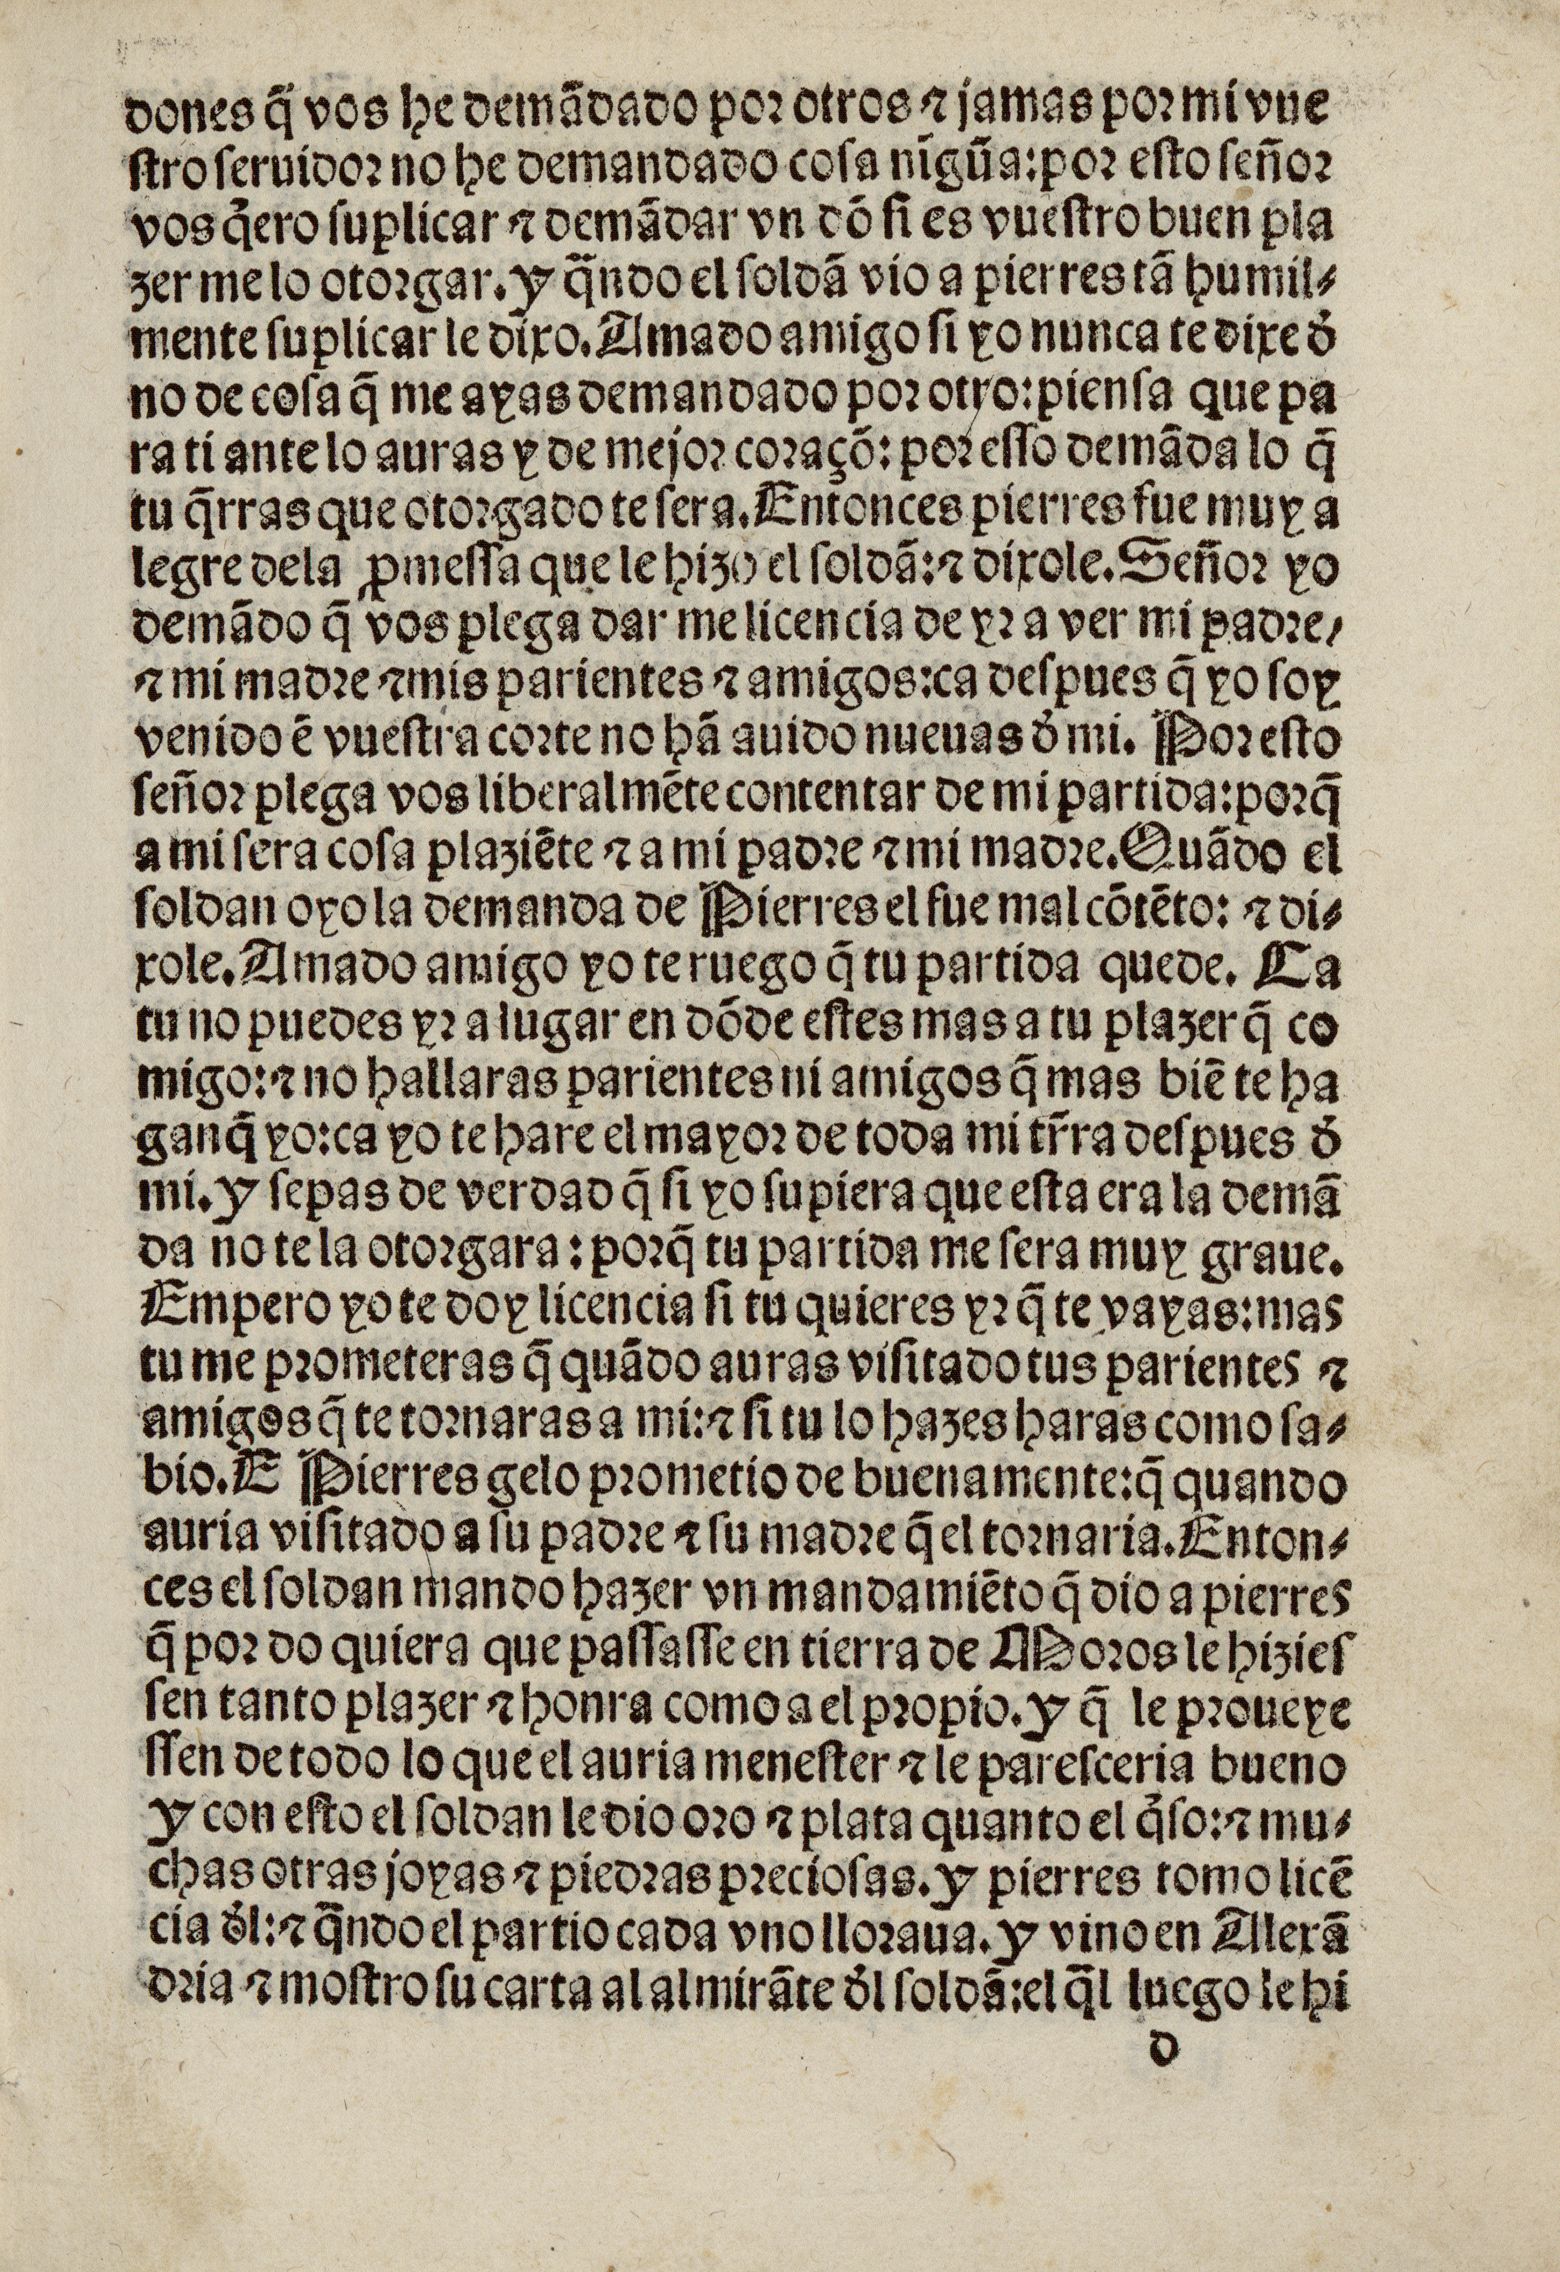 dones q̃ vos he demãdado por otros ⁊ jamas por mi vue
stro seruidor no he demandado cosa nĩgũa: por esto señor
vos q̇ero suplicar ⁊ demãdar vn dõ si es vuestro buen pla
zer me lo otorgar. Y q̃ndo el soldã vio a pierres tã humil-
mente suplicar le dixo. Amado amigo si yo nunca te dixe đ
no de cosa q̃ me ayas demandado por otro: piensa que pa
ra ti ante lo auras y de mejor coraçõ: por esso demãda lo q̃
tu q̃rras que otorgado te sera. Entonces pierres fue muy a
legre dela ꝓmessa que le hizo el soldã: ⁊ dixole. Señor yo
demãdo q̃ vos plega dar me licencia de yr a ver mi padre/
⁊ mi madre ⁊ mis parientes ⁊ amigos: ca despues q̃ yo soy
venido ẽ vuestra corte no hã auido nueuas đ mi. Por esto
señor plega vos liberalmẽte contentar de mi partida: porq̃
a mi sera cosa plaziẽte ⁊ a mi padre ⁊ mi madre. Quãdo el
soldan oyo la demanda de Pierres el fue mal cõtẽto: ⁊ di-
xole. Amado amigo yo te ruego q̃ tu partida quede. Ca
tu no puedes yr a lugar en dõde estes mas a tu plazer q̃ co
migo: ⁊ no hallaras parientes ni amigos q̃ mas biẽ te ha
gan q̃ yo: ca yo te hare el mayor de toda mi tr̃ra despues đ
mi. Y sepas de verdad q̃ si yo supiera que esta era la demã
da no te la otorgara: porq̃ tu partida me sera muy graue.
Empero yo te doy licencia si tu quieres yr q̃ te vayas: mas
tu me prometeras q̃ quãdo auras visitado tus parientes ⁊
amigos q̃ te tornaras a mi: ⁊ si tu lo hazes haras como sa-
bio. E Pierres gelo prometio de buenamente: q̃ quando
auria visitado a su padre ⁊ su madre q̃ el tornaria. Enton-
ces el soldan mando hazer vn mandamiẽto q̃ dio a pierres
q̃ por do quiera que passasse en tierra de Moros le hizies
sen tanto plazer ⁊ honra como a el propio. Y q̃ le proueye
ssen de todo lo que el auria menester ⁊ le paresceria bueno
Y con esto el soldan le dio oro ⁊ plata quanto el q̇so: ⁊ mu-
chas otras joyas ⁊ piedras preciosas. Y pierres tomo licẽ
cia đl: ⁊ q̃ndo el partio cada vno lloraua. Y vino en Alexã
dria ⁊ mostro su carta al almirãte đl soldã: el q̃l luego le hi
d